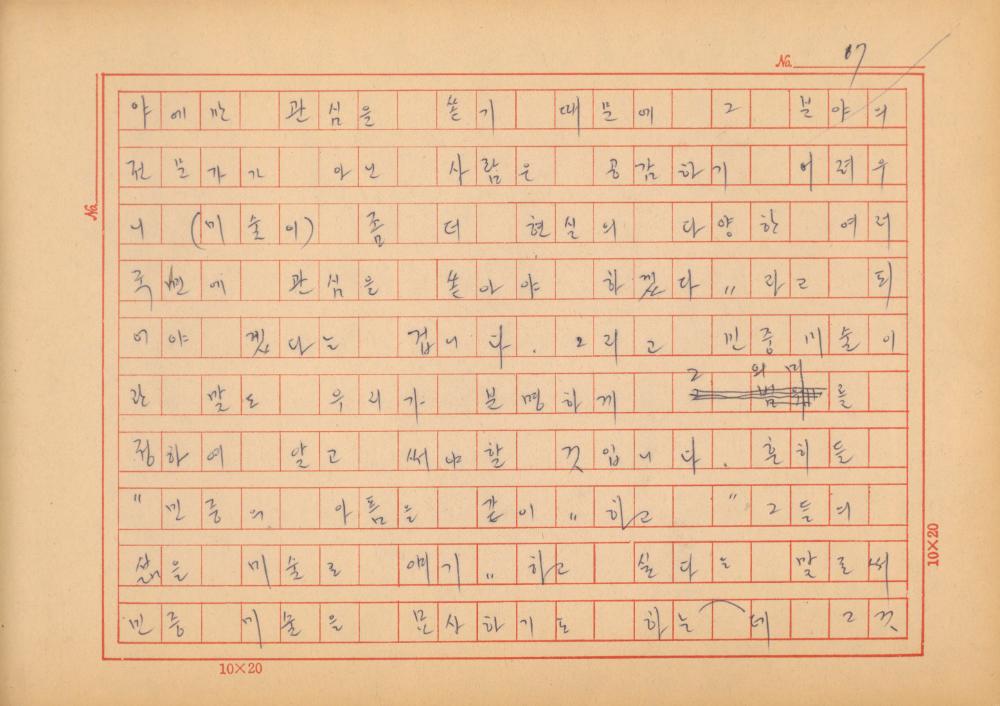 No. 17
야에만 관심을 쏟기 때문에 그 분야의
전문가가 아닌 사람은 공감하기 어려우
니 (미술이) 좀 더 현실의 다양한 여러
국면에 관심을 쏟아야 하겠다 〃 라고 되
어야 겠다는 겁니다. 그리고 민중미술이
란 말도 우리가 분명하게 그 의미를
정하여 알고 써야할 것입니다. 흔히들
" 민중의 아픔을 같이 〃 하고 " 그들의
삶을 미술로 얘기 〃 하고 싶다는 말로써
민중 미술을 묘사하기도 하는데 그것
No.
10×20
10×20